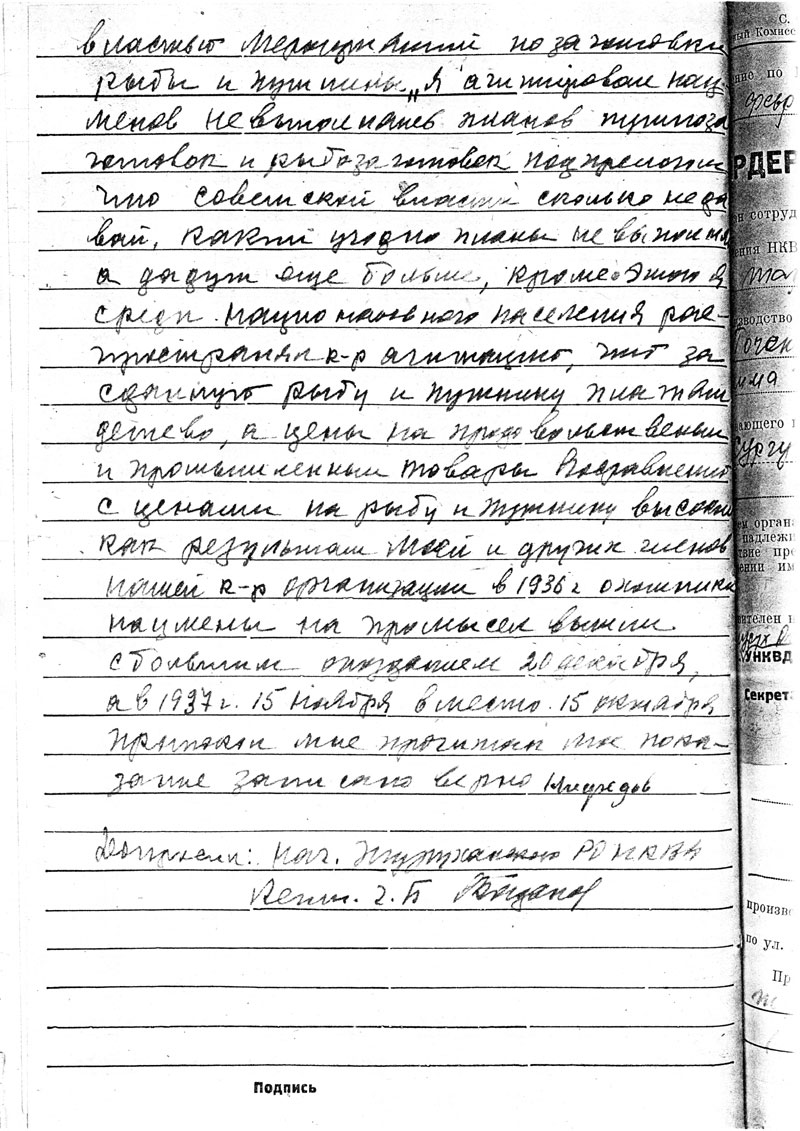 властью мероприятий по заготовки
рыбы и пушнины, я агитировал нац-
менов невыполнять планов пушноза
готовок и рыбозаготовок под предлогом
что советской власти сколько неда
вай, какой угодно планы не выполняй
а дадут еще больше, кроме этого я
среди национального населения рас-
пространял к-р агитацию, что за
сданную рыбу и пушнину платят
дешево, а цены на продовольственые
и промышленные товары посравнению
с ценами на рыбу и пушнину высокие
как результат моей и других членов
нашей к-р организации в 1936 г. охотники
нацмены на промысел вышли
с большим опозданием 20 декабря,
а в 1937 г. 15 ноября вместо 15 октября
Протокол мне прочитан мое пока-
зание записано верно
Допросил: Нач. РО НКВД
г. Б
Подпись
С.
ный Комисс
ние по
февр
РДЕР
сотруд
ения НКВ
водство
ающего
Сургу
ем орган
надлежи
ствие пре
ении им
УНКВД
Секрет
произво
по ул.
Пр